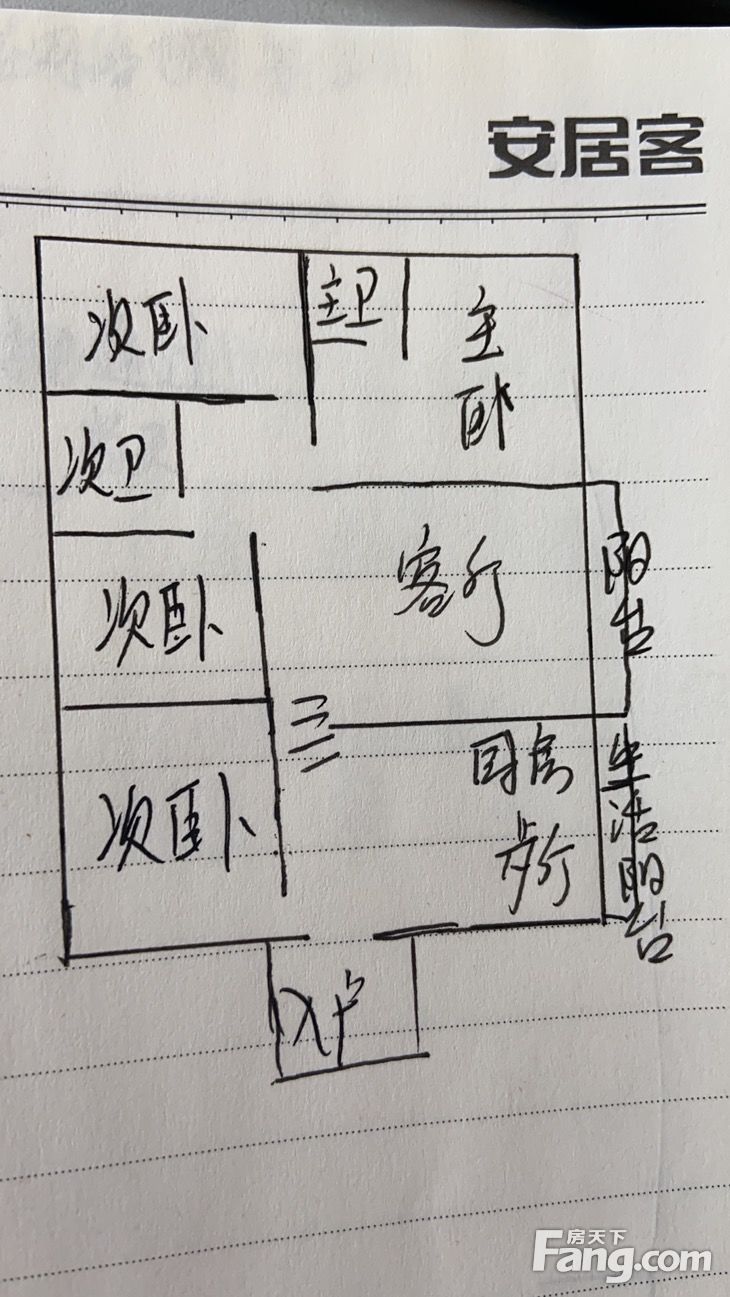 安居客
次卧
主卫
主卧
次卫
次卧
客厅
阳台
次卧
厨房
生活阳台
歺厅
入户
房天下
Fang.com